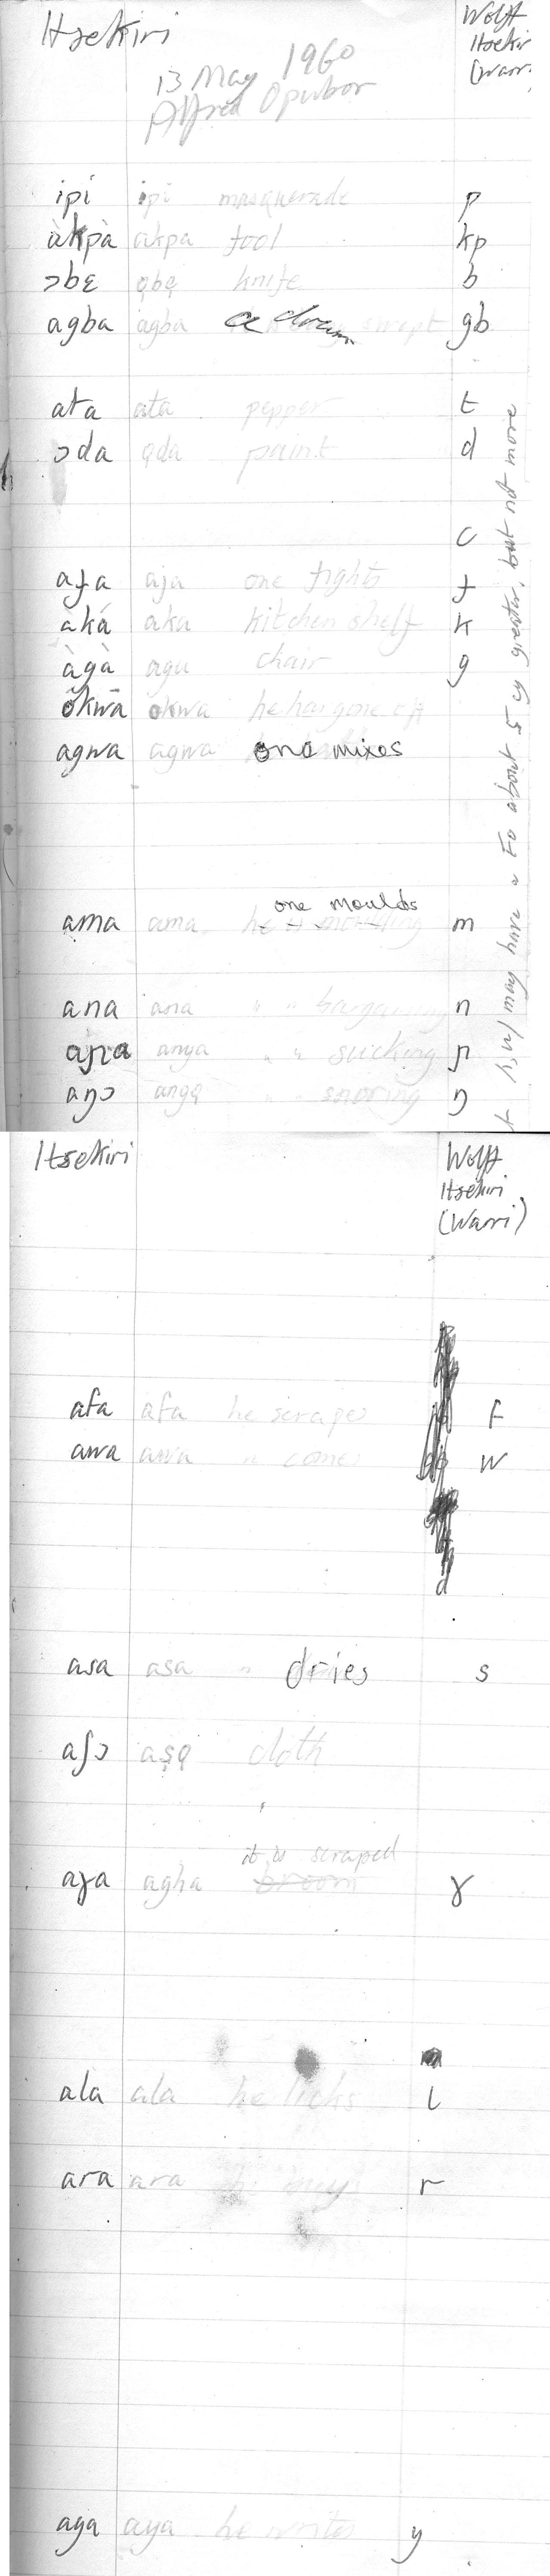 Itsekiri
Wolff
Itsekir
(Warr
13 May 1960
Alfred Opubor
ipi ipi masquerade p
àkpà akpa fool kp
ɔbɛ ọbẹ knife b
agba agba a drum swept gb
ata ata pepper t
ɔda ọda paint d
c
aɟa aja one fights ɟ
àká aka kitchen shelf k
ágà aga chair g
ŏkwā okwa he has gone off
agwa agwa one mixes
one moulds
ama ama he is moulding m
ana ana " " bargaining n
aɲa anya " " sucking ɲ
aŋɔ angọ " snoring ŋ
may have a Fo about 5 cy greater, but not more
Itsekiri
Wolff
Itsekiri
(Warri)
afa afa he scrapes f
awa awa " comes w
d
asa asa " dries s
aʃɔ aṣọ cloth
it is scraped
aɣa agha broom ɣ
ala ala he licks l
ara ara he buys r
aya aya he writes y